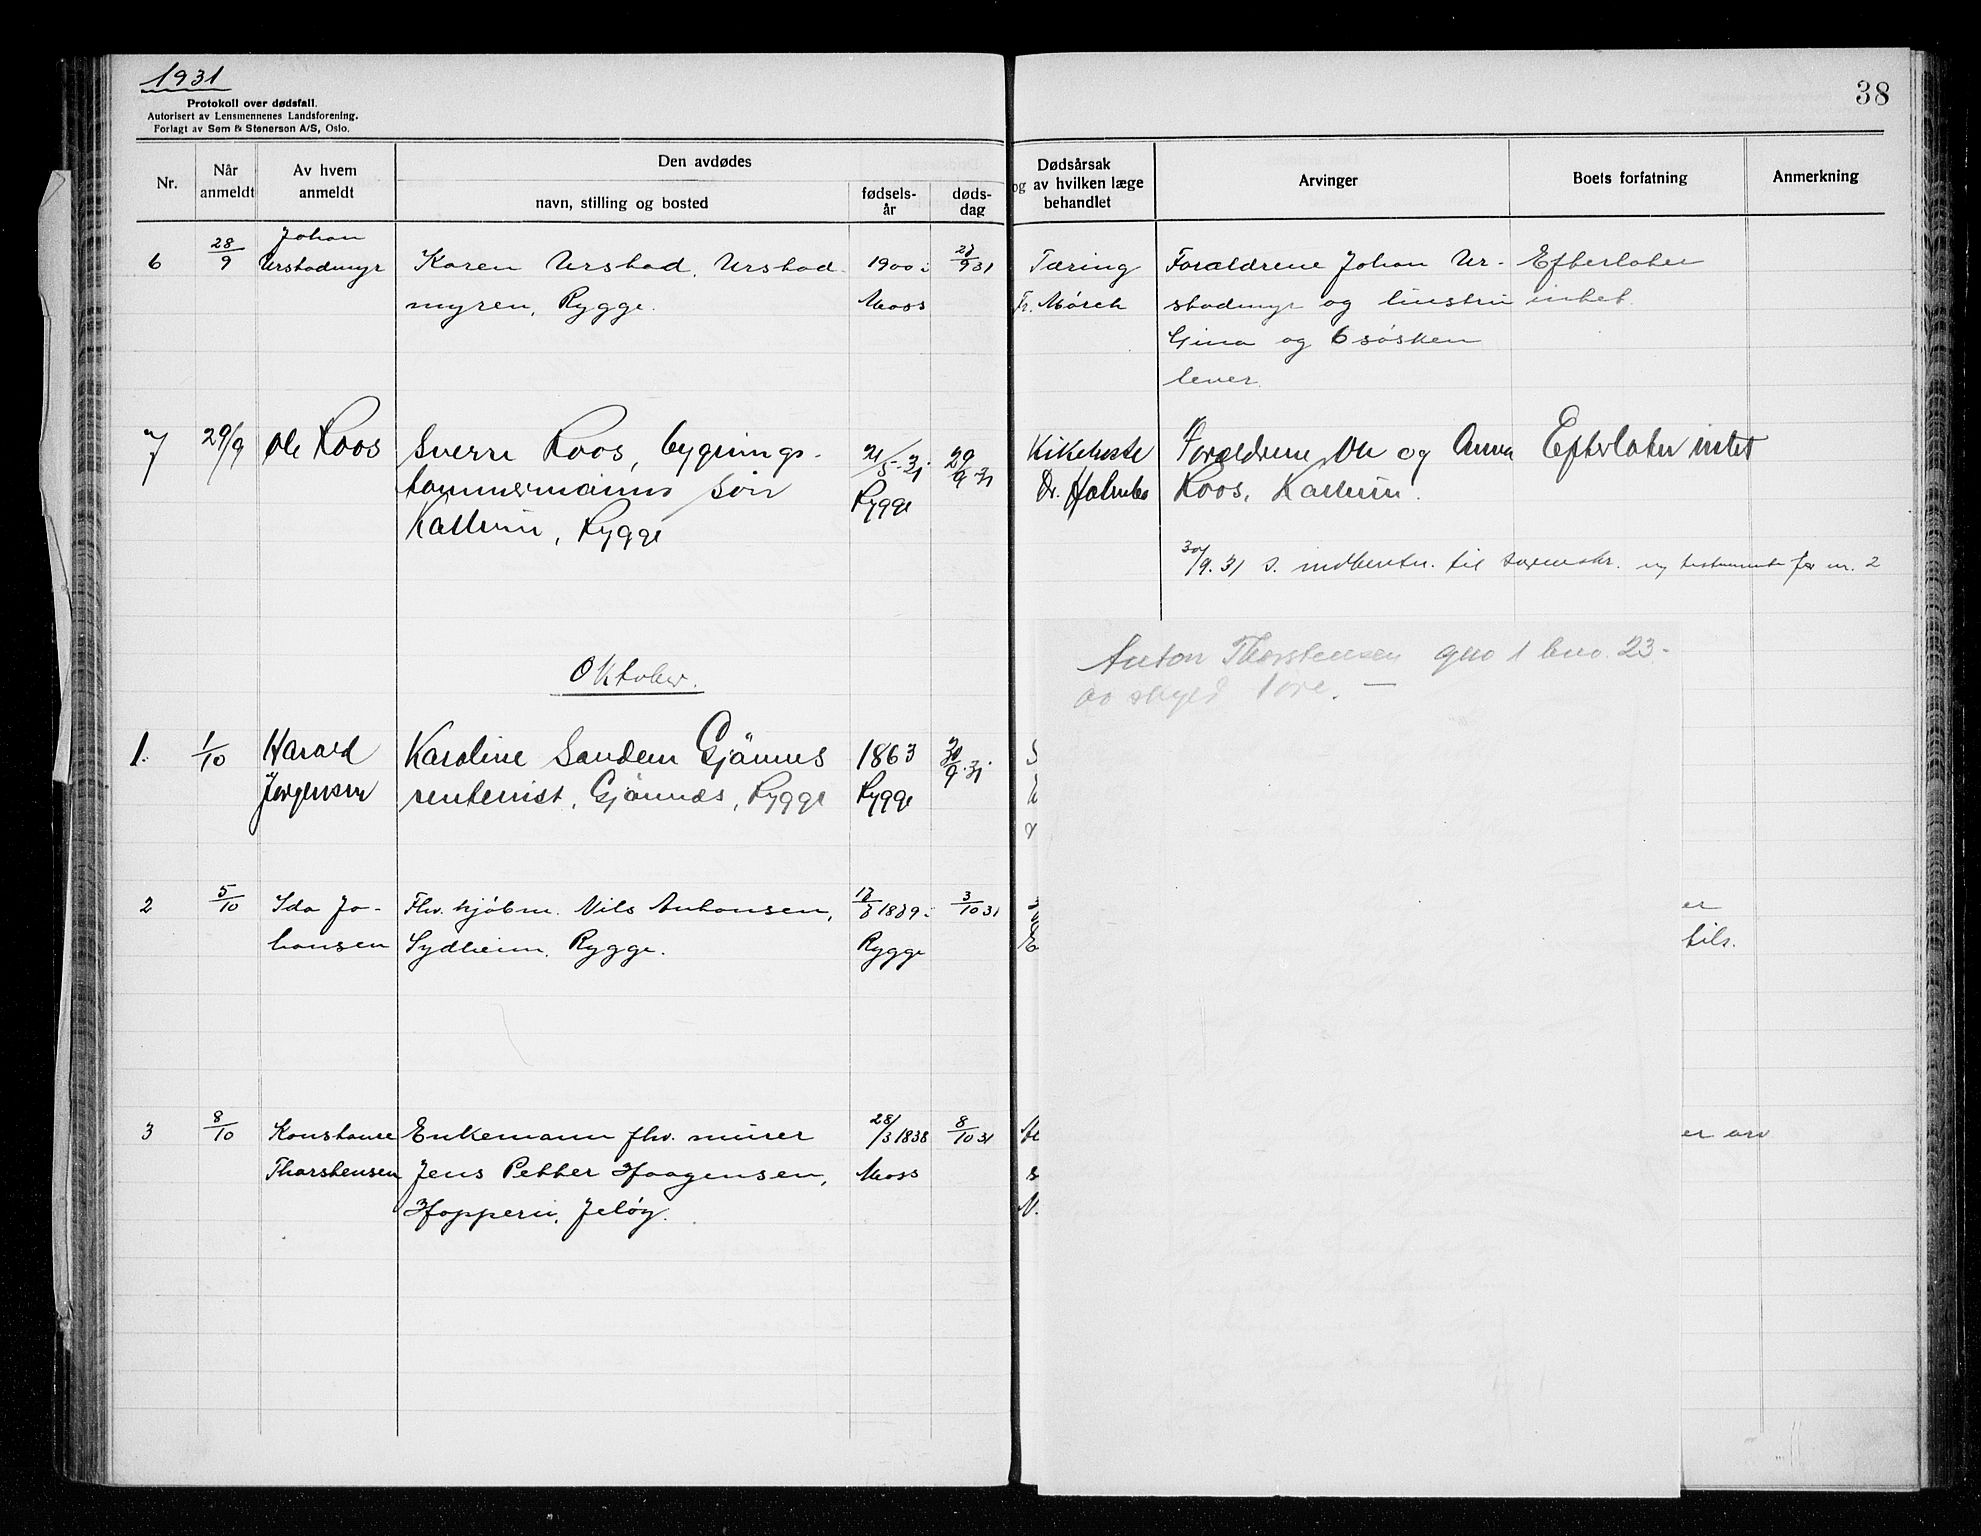 1931
Protokoll over dødsfall.
Autorisert av Lensmennenes Landsforening.
Forlagt av Sem & Stenersen A/S, Oslo.
38
Nr.
Når anmeldt
Av hvem anmeldt
Den avdødes
navn, stilling og bosted
fødsels-år
døds-dag
Dødsårsak
og av hvilken læge
behandlet
Arvinger
Boets forfatning
Anmerkning
6 28/9 Johan Urstadmyr
Karen Urstad, Urstad
myren, Rygge.
1900 i Moss
27/9 31
Tæring
Fr. Mörch
Forældrene Johan Ur-
stadmyr og hustru
Gina og 6 søsken
lever.
Efterlater
intet.
7 29/9 Ole Roos
Sverre Roos, bygnings-
tømmermanns søn
Rygge
21/5-31 Rygge
29/9 31
Kikhoste
Dr. Holmbo
Forældrene Ole og Anna
Roos,
Efterlater intet
30/9.31 s. til nr. 2
Oktober.
1. 1/10 Harald
Jørgensen
Karoline Sandem Gjønnes
rentenist, Gjønnæs, Rygge
1863
Rygge
30/9.31
2 5/10 Ida Jo-
hansen
Fhv. kjöbm. Nils Antonsen,
Sydheim, Rygge.
1839 i
Rygge
3/10 31
er
tils.
3 8/10 Konstanse
Thorstensen
Enkemann fhv. murer
Jens Petter Haagensen,
Hoppern, Jeløy.
28/3 1838
Moss
8/10 31
er arv
Anton Thorstensen gno 1 bno. 23-
av skyld 1 øre. —